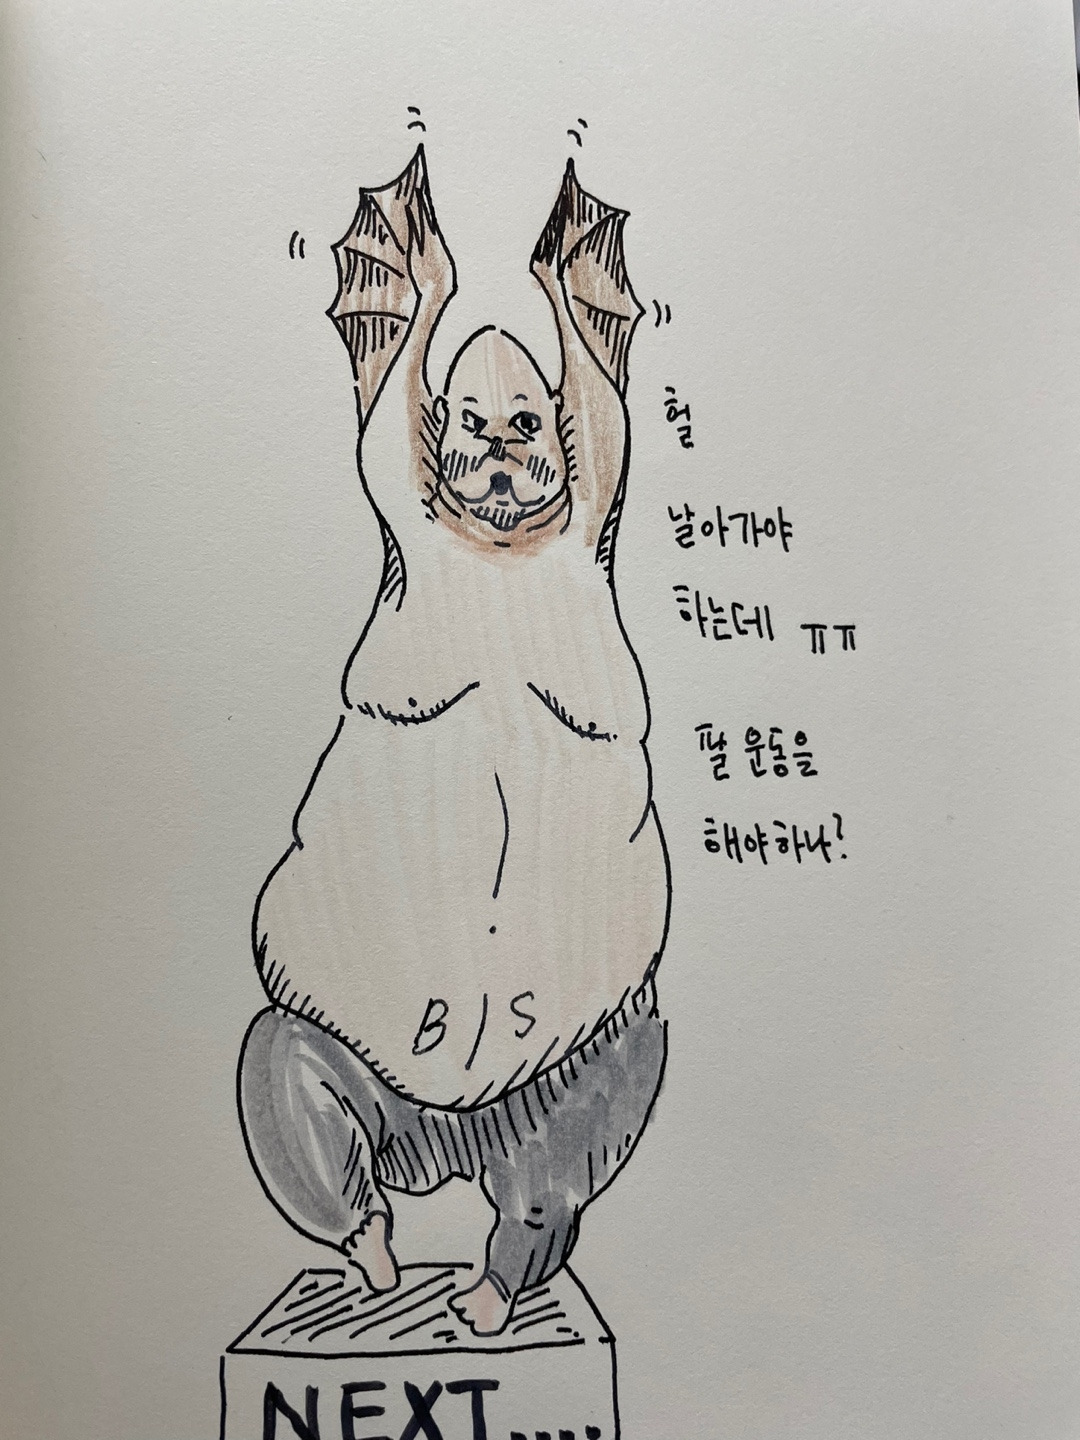 헐
날아가야
하는데 ㅠㅠ
팔 운동을
해야하나?
B/S
NEXT....